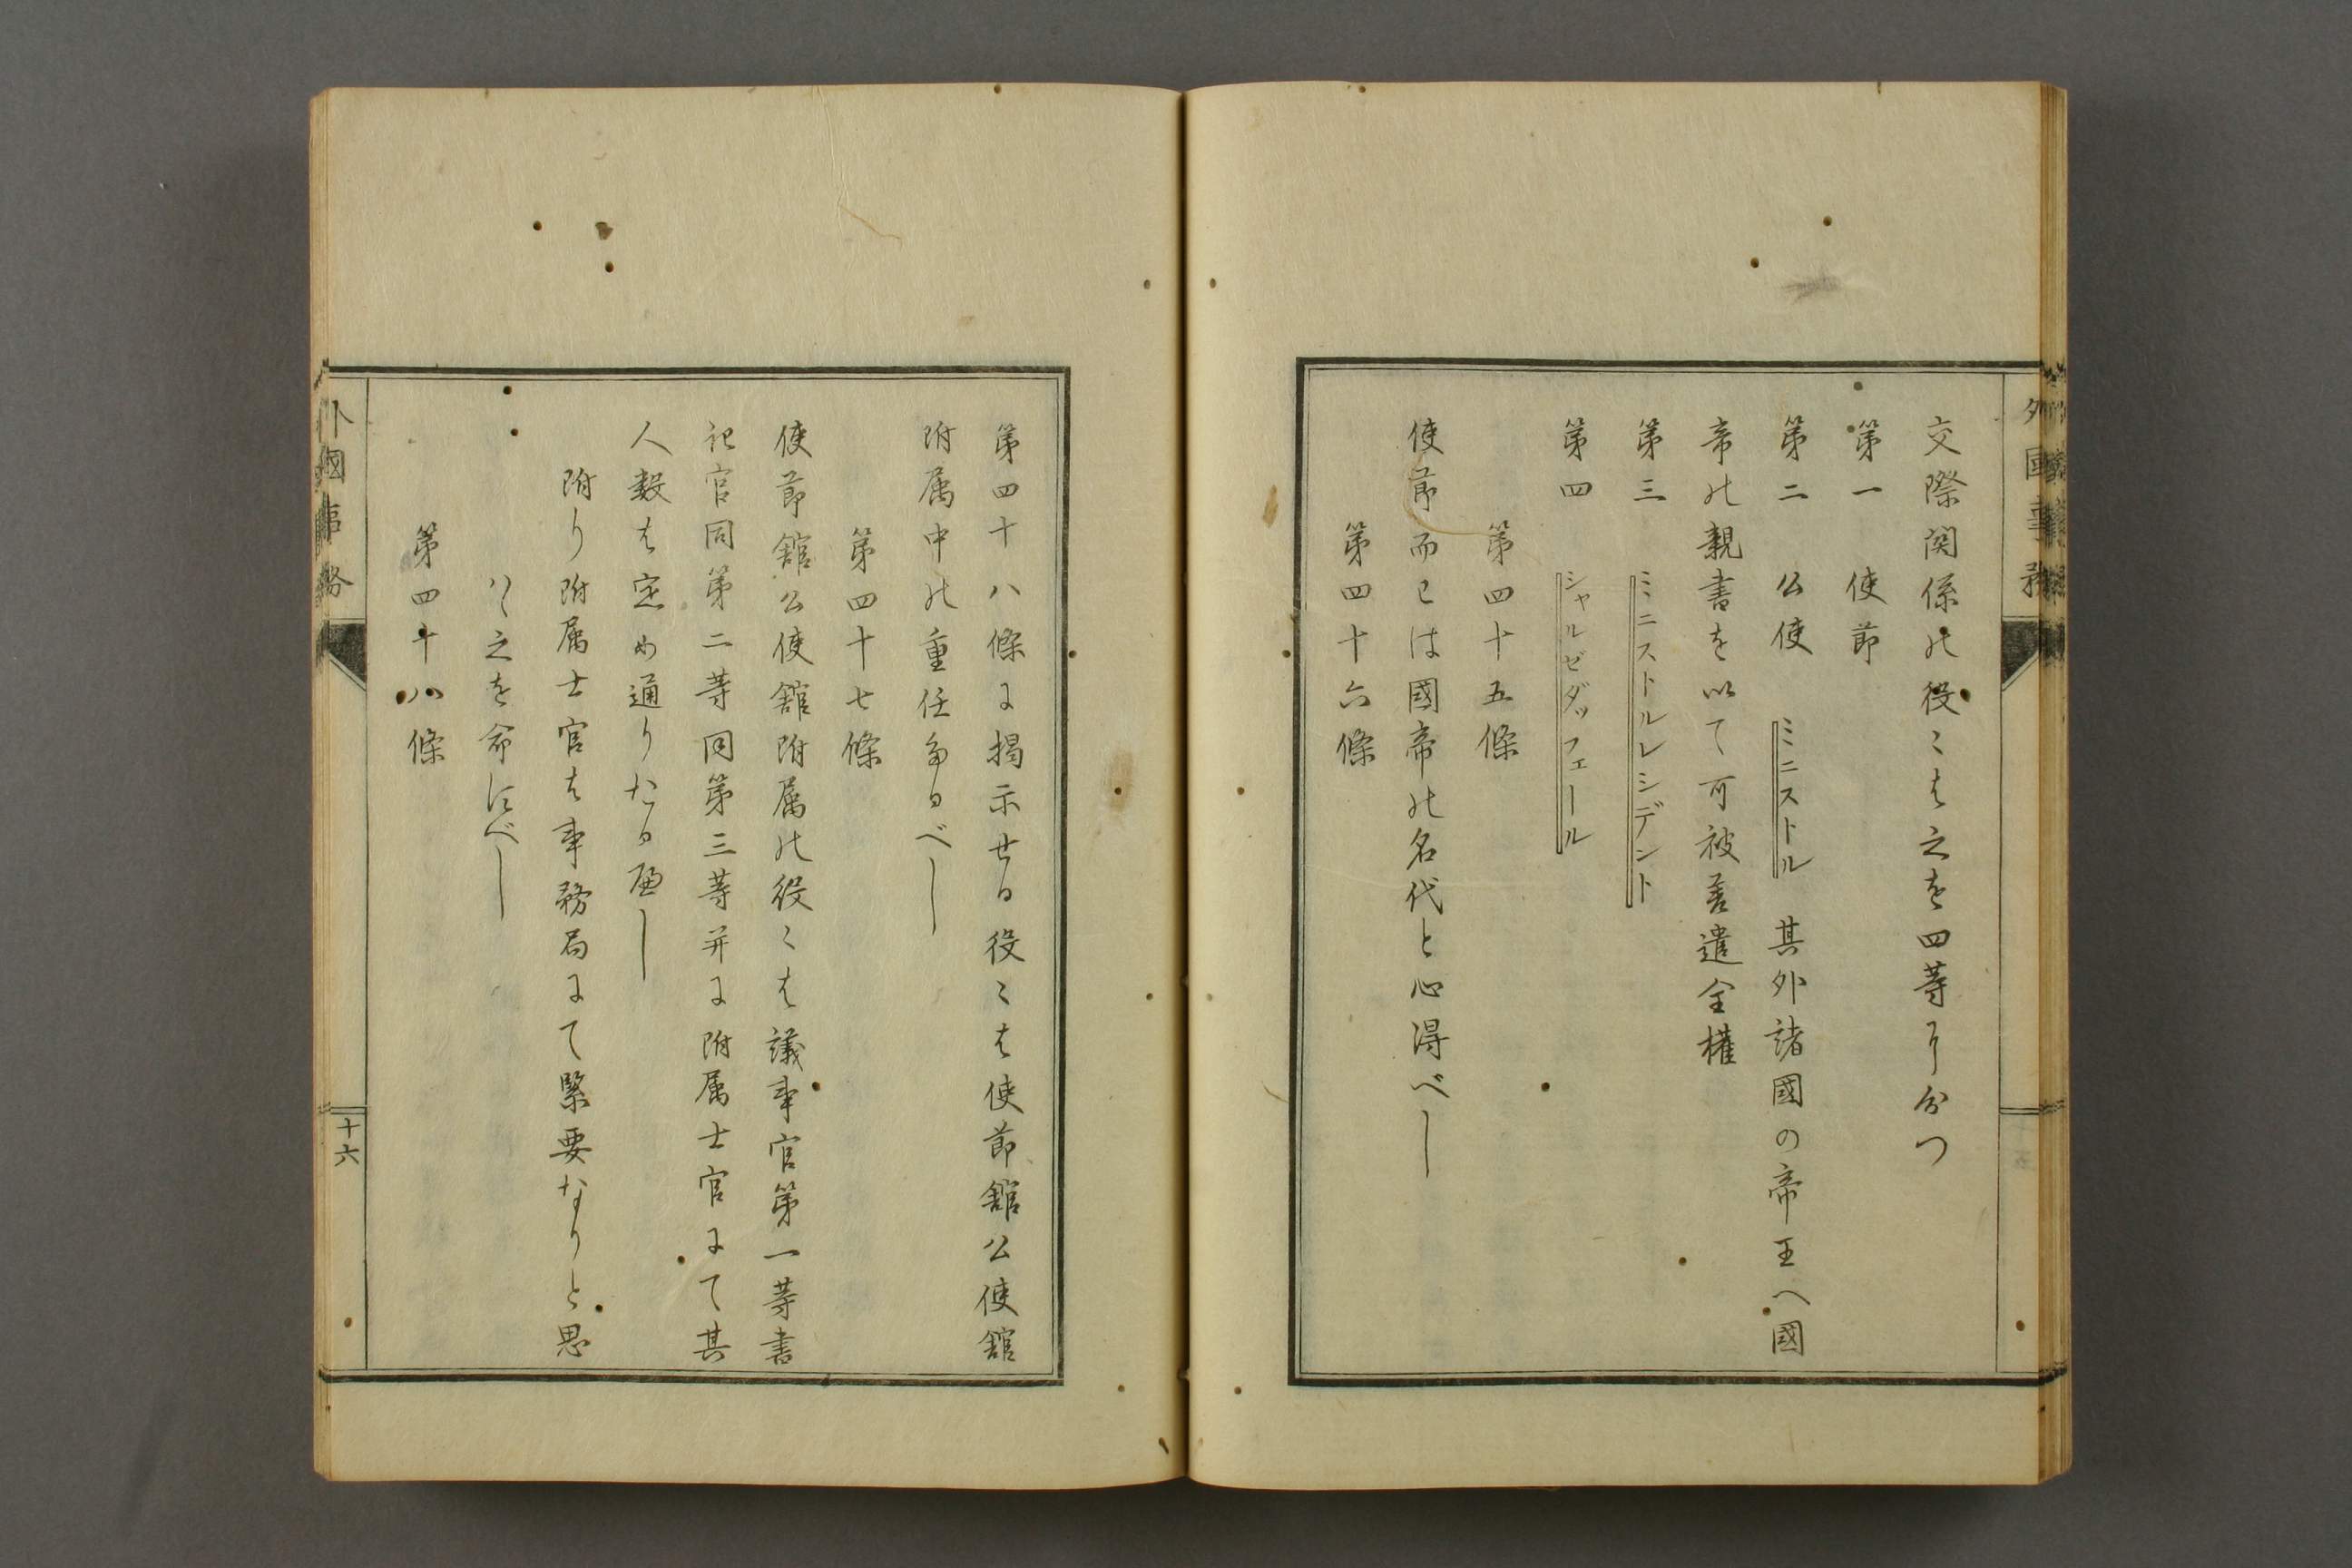 外國事務
交際関係の役々は之を四等に分つ
第一　使節
第二　公使　ミニストル　其外諸國の帝王へ國
帝の親書を以て可被差遣全権
第三　ミニストルレシデント
第四　シャルゼダッフェール
第四十五條
使節而已は國帝の名代と心得べし
第四十六條
第四十八條に掲示せる役々は使節舘公使舘
附属中の重任たるべし
第四十七條
使節舘公使舘附属の役々は議事官第一等書
記官同第二等同第三等并に附属士官にて其
人数は定め通りたる可し
附り附属士官は事務局にて緊要なりと思
はゝ之を命すべし
第四十八條
外國事務
十六